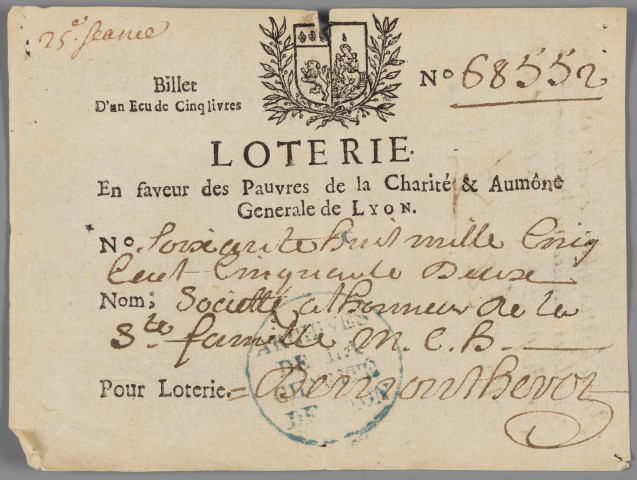 25e. seance
Billet
D'un Ecu de Cinq livres
No 68552
LOTERIE.
En faveur des Pauvres de la Charité & Aumône
Generale de LYON.
No. Soixante huit mille Cinq
Cent Cinquante Deux
Nom; Societté a lhonneur de la
Ste famille M. C. B.
Pour Loterie.
ARCHIVES
DE LA
CHARITÉ
DE LYON